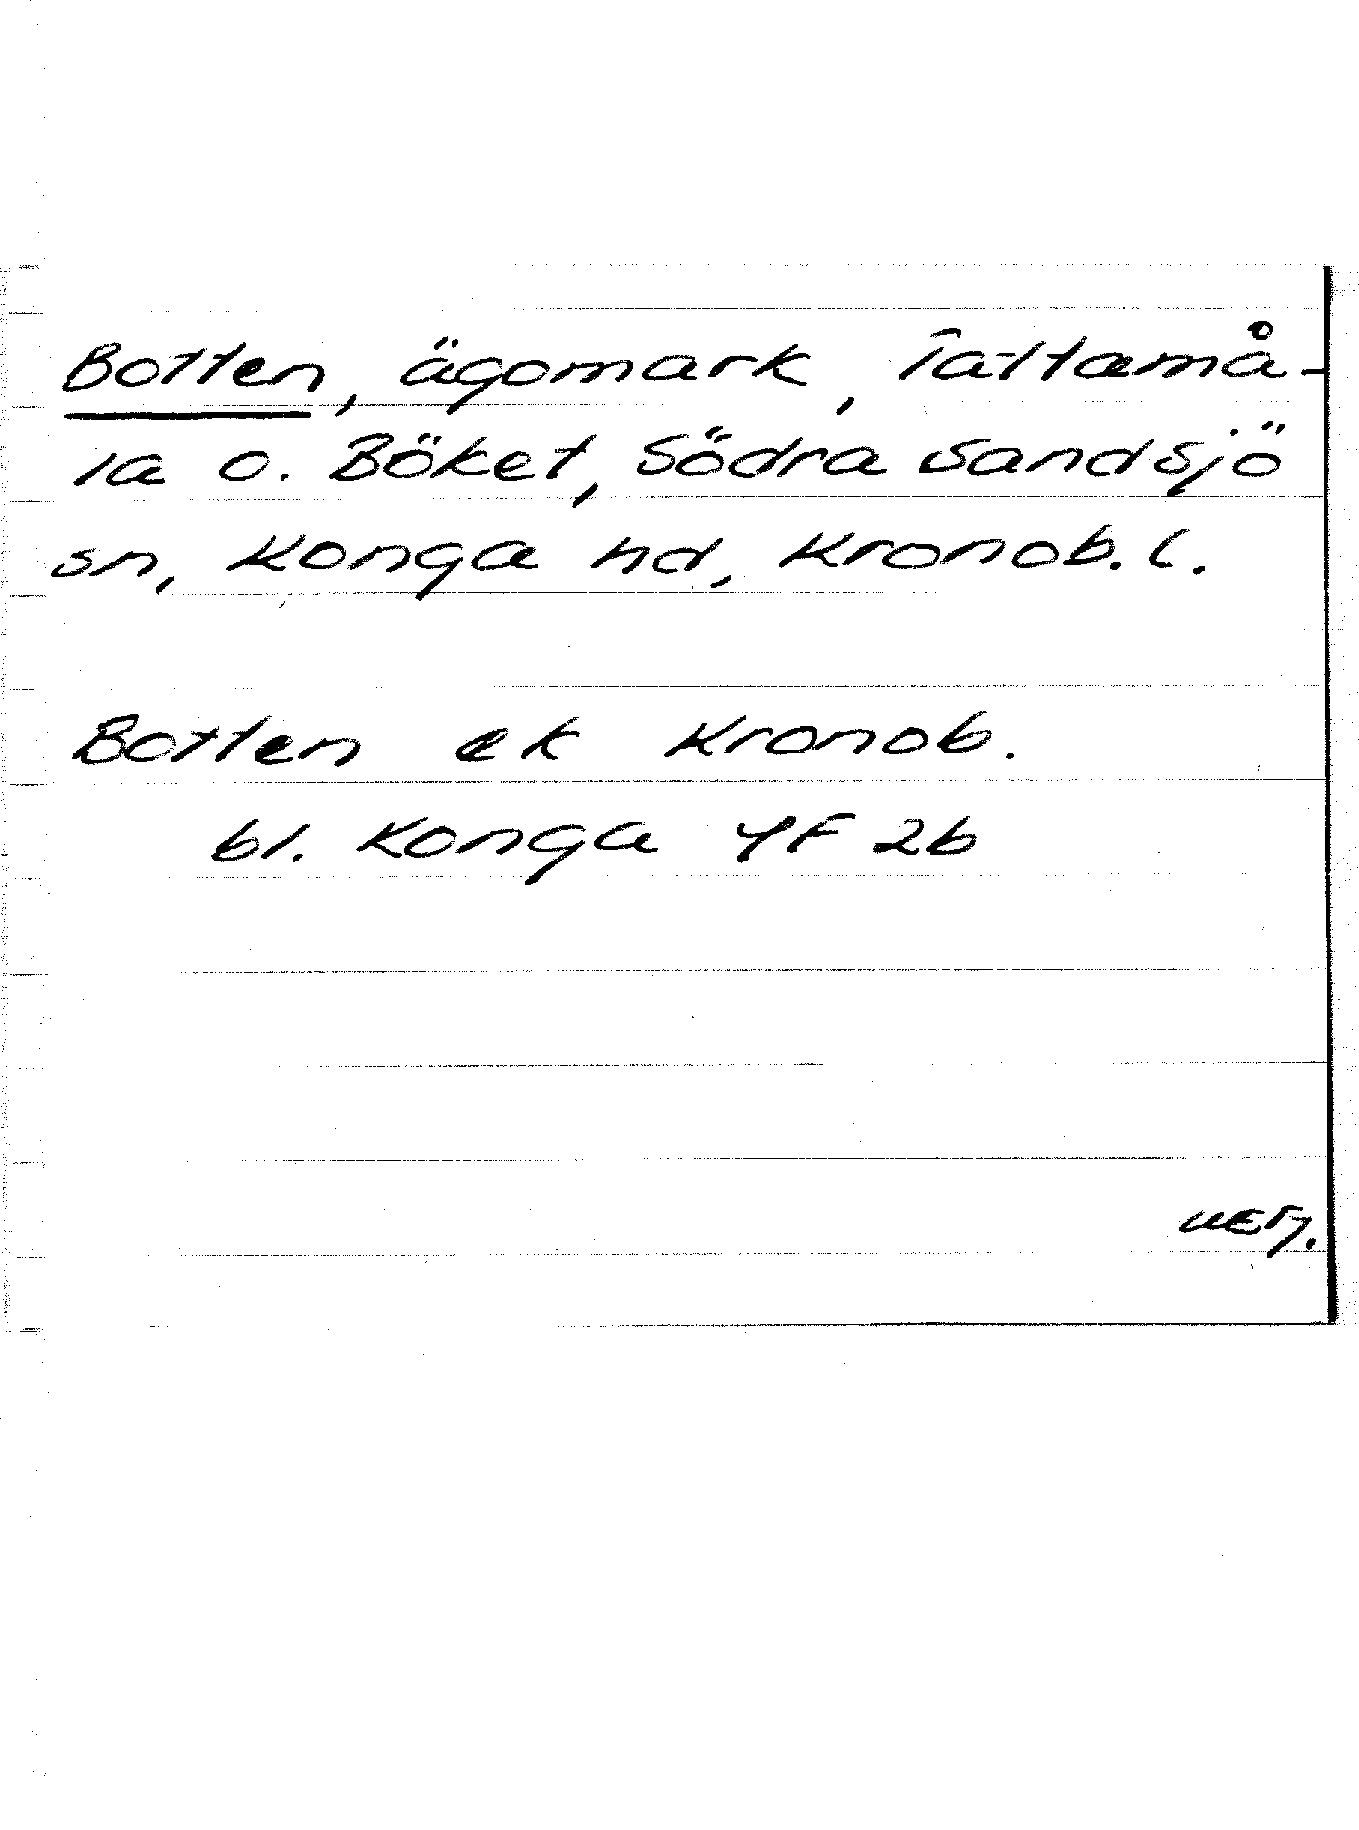 Botten, ägomark, Tattamå-
la o. Böket, Södra Sandsjö
sn, Konga hd, Kronob. l.
Botten ek Kronob.
bl. Konga 4F 2b